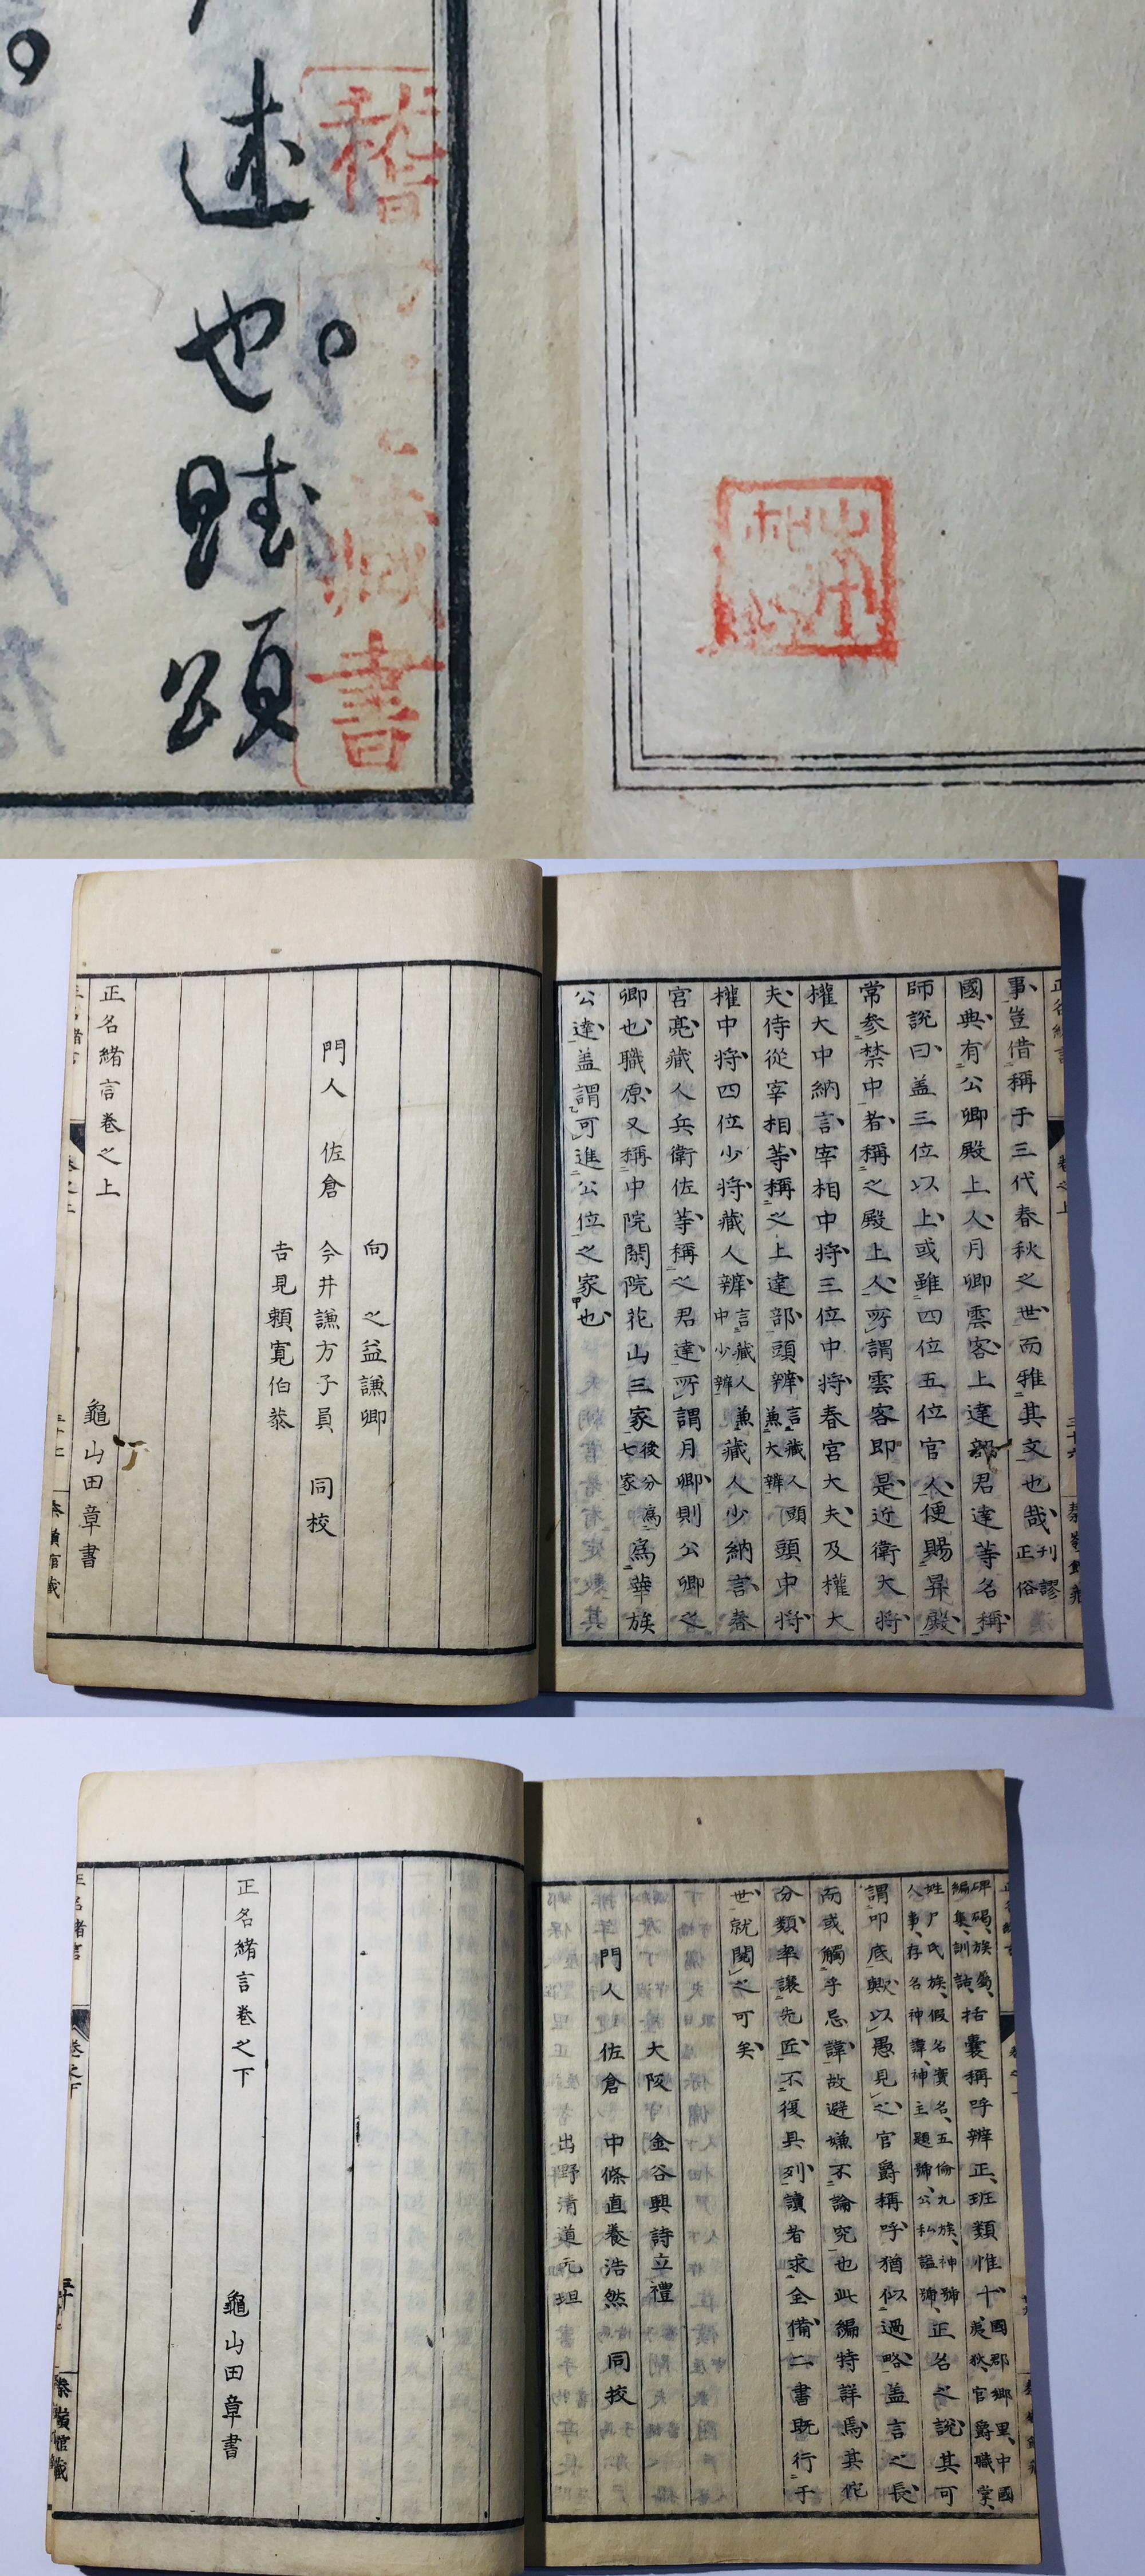 述也賦頌
藏書
事豈借稱于三代春秋之世而雅其文也哉刊謬正俗
國典有公卿殿上人月卿雲客上達部君達等名稱
師說曰盖三位以上或雖四位五位官人便賜昇殿
常參禁中者稱之殿上人所謂雲客即是近衛大將
權大中納言宰相中將三位中將春宮大夫及權大
夫侍從宰相等稱之上達部頭辨言藏人頭兼大辨頭中將
權中將四位少將藏人辨言藏人兼中少辨藏人少納言春
宮亮藏人兵衛佐等稱之君達所謂月卿則公卿之
卿也職原又稱中院閑院花山三家後分為七家為華族
公達盖謂可進公位之家也
向 之益謙卿
門人 佐倉 今井謙方子員 同校
吉見賴寬伯恭
正名緒言卷之上
龜山田章書
正名緒言
卷之上
碑碣、族葛、括囊稱呼辨正、班類惟十
謂叩底歟以愚見之官爵稱呼猶似過略盖言之長
而或觸乎忌諱故避嫌不論究也此編特詳焉其佗
分類率讓先匠不復具列讀者求全備二書既行于
世就閱之可矣
大阪 金谷興詩立禮
門人 佐倉 中條直養浩然 同挍
出野清道元坦
正名緒言卷之下
龜山田章書
正名緒言
卷之下
秦嶺館藏